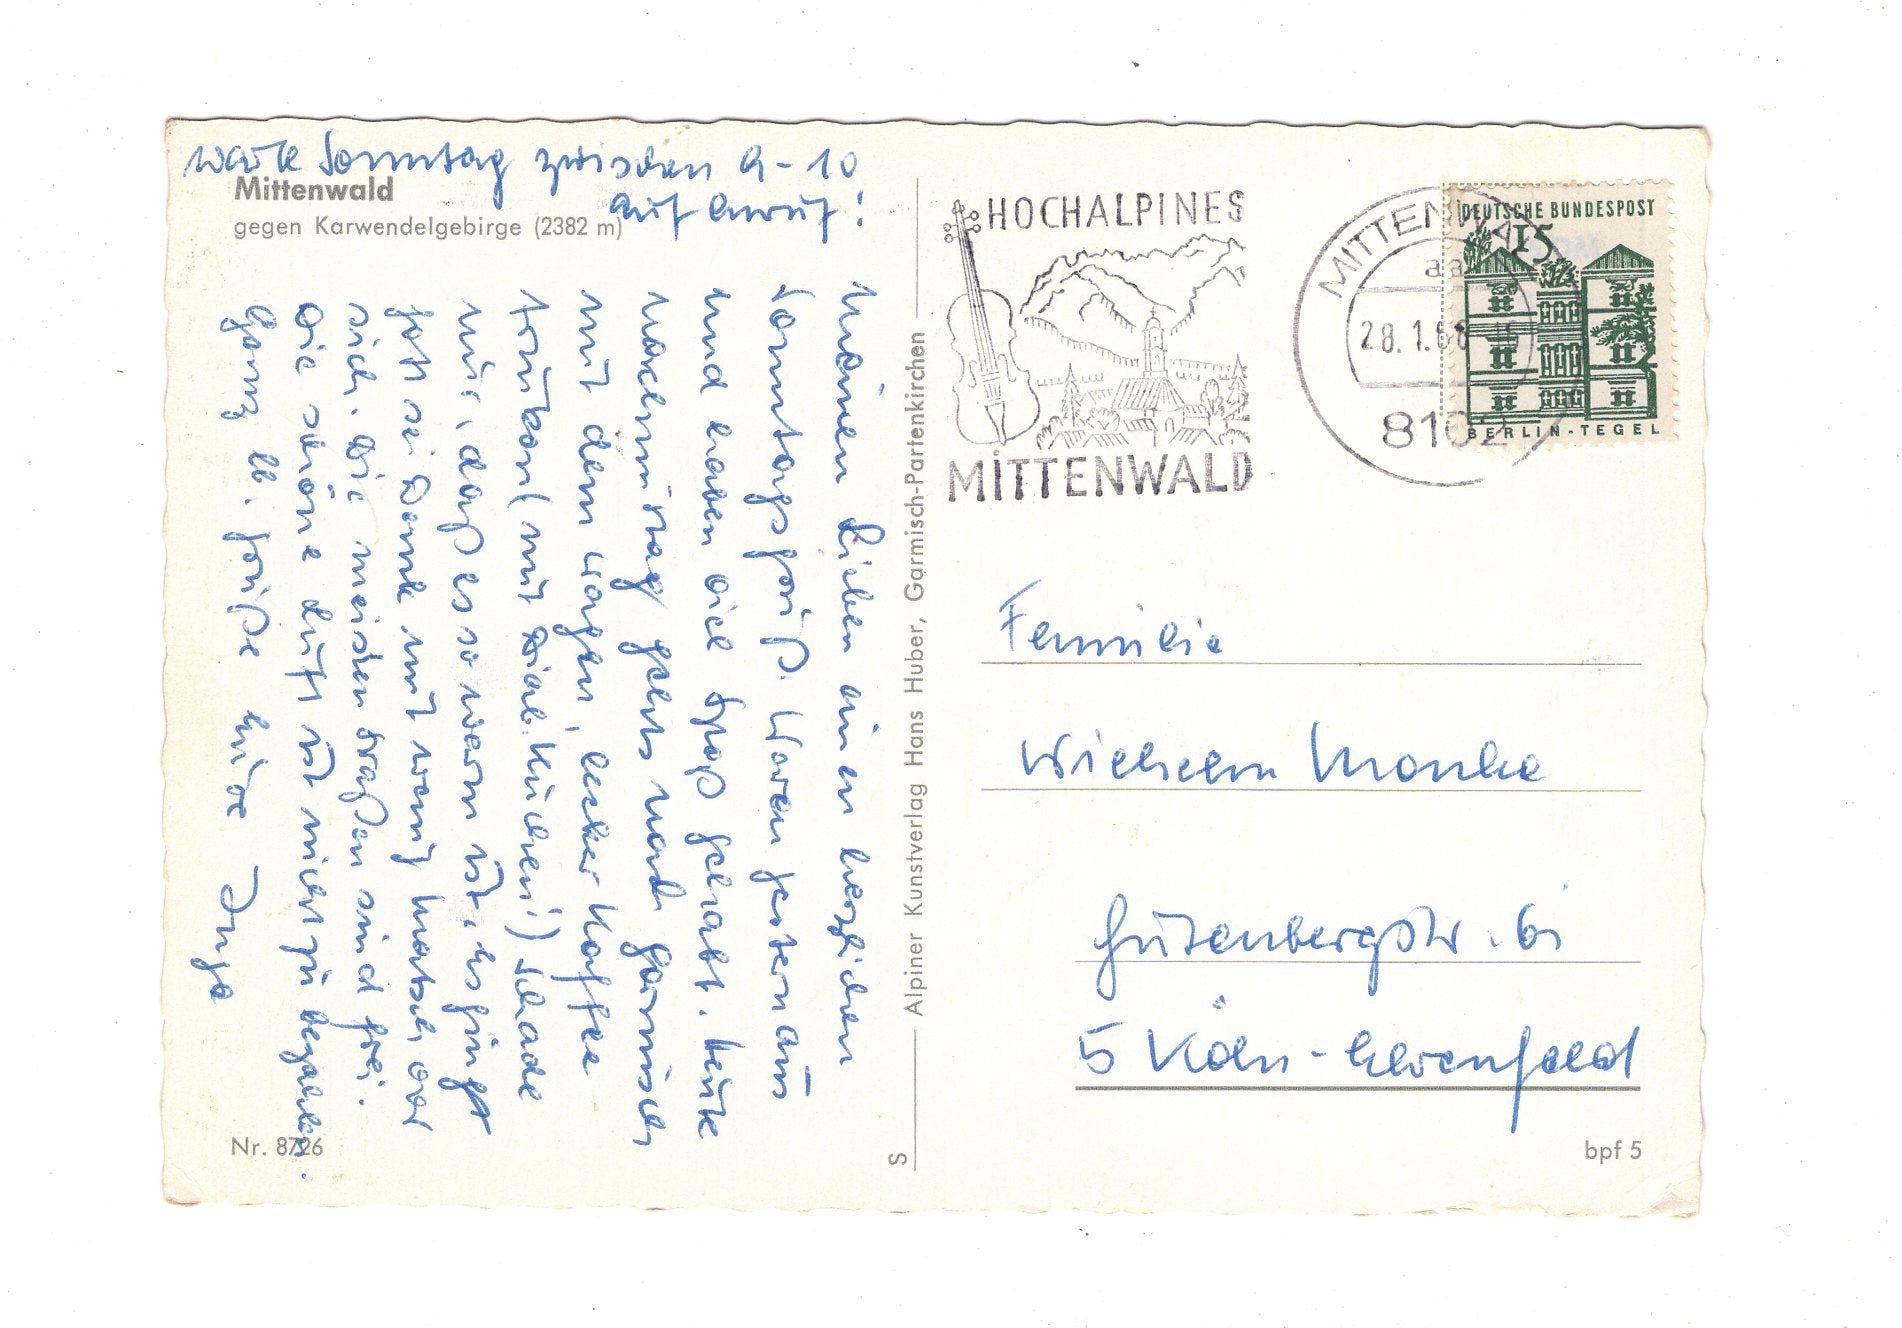 warte Sonntag zwischen 9-10
auf Anruf!
Mittenwald
gegen Karwendelgebirge (2382 m)
Meinen Lieben einen herzlichen
Sonntagsgruß. Waren gestern aus
und haben viel Spaß gehabt. Heute
nachmittag gehts nach Garmisch
mit dem Wagen, lecker Kaffee
trinken (mit Diab. Kuchen!) Schade
nur, daß es so warm ist. Es fängt
Gott sei Dank nur wenig Matsch
sich. Die meisten Straßen sind frei.
Die schöne Luft ist nicht zu bezahlen.
Ganz lb. Grüße Eure Inge
Nr. 8726
Alpiner Kunstverlag Hans Huber, Garmisch-Partenkirchen
S
HOCHALPINES
MITTENWALD
MITTENWALD
aa
28.1.68-16
8102
DEUTSCHE BUNDESPOST
15
BERLIN-TEGEL
Familie
Wilhelm Monke
Gutenbergstr. 61
5 Köln-Ehrenfeld
bpf 5